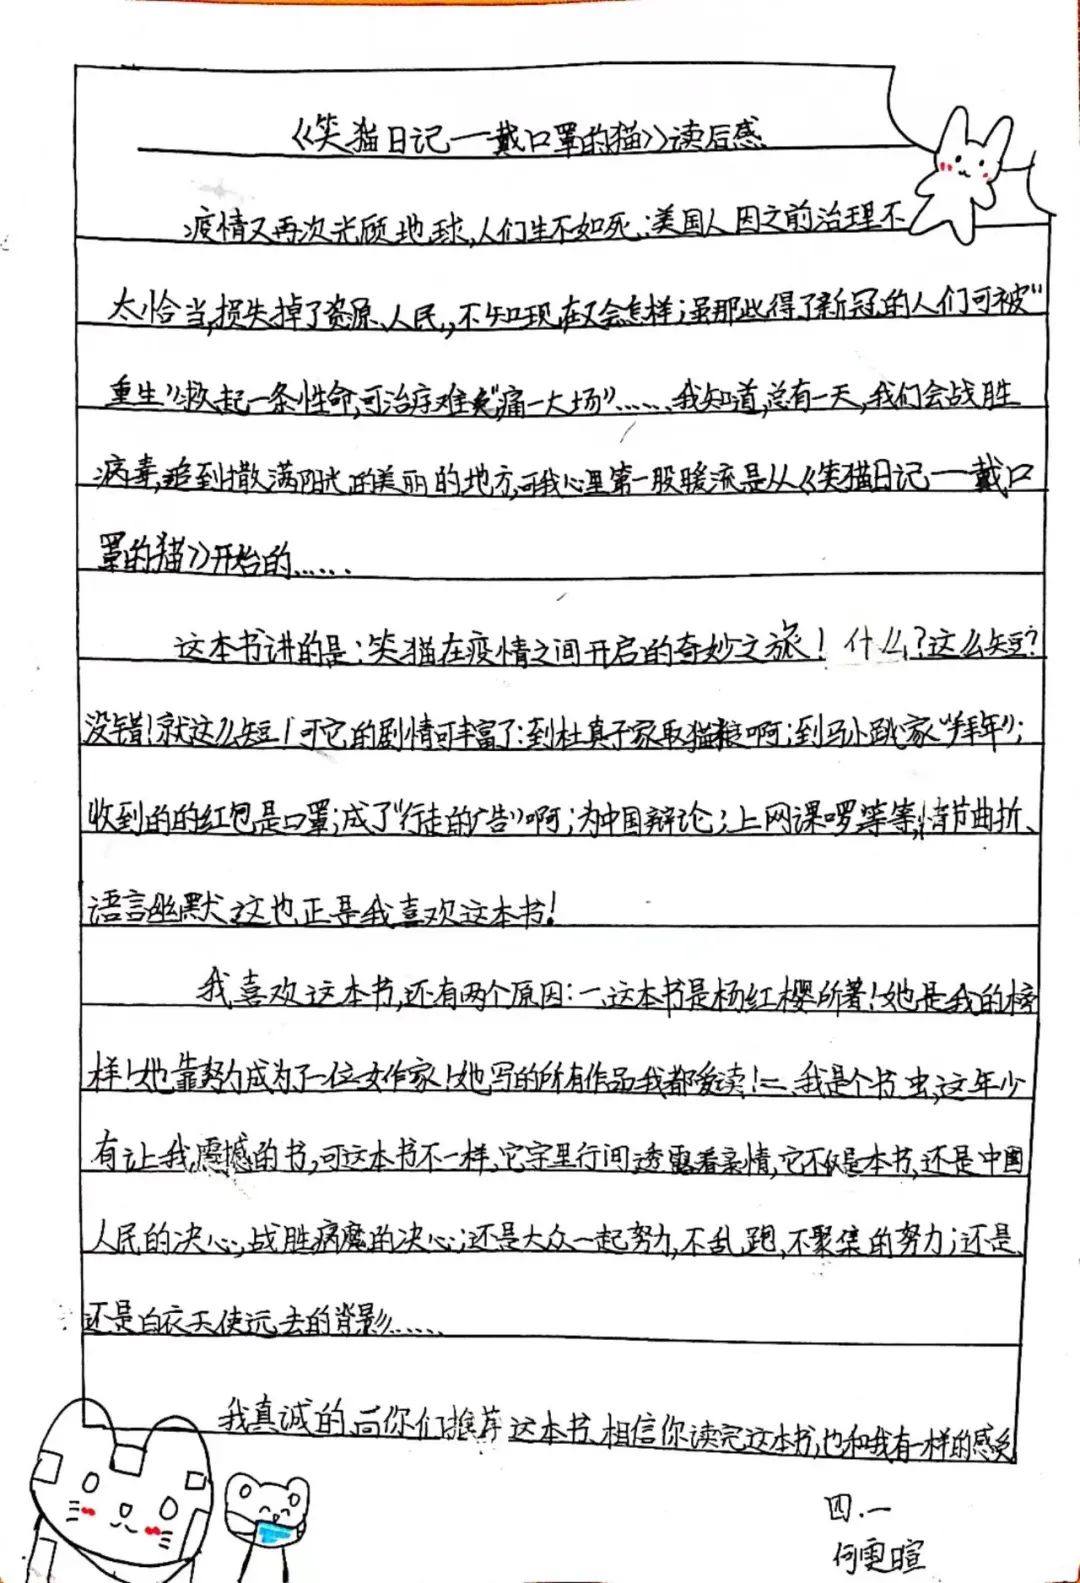 《笑猫日记一戴口罩的猫》读后感
疫情又再次光顾地球,人们生不如死;美国人因之前治理不
太恰当,损失掉了资源、人民,,不知现在又会怎样;虽那些得了新冠的人们可被“
重生”救起一条性命,可治疗难免“痛一大场”……我知道,总有一天,我们会战胜
病毒,追到撒满阳光的美丽的地方,可我心里第一股暖流是从《笑猫日记一戴口
罩的猫》开始的……
这本书讲的是:笑猫在疫情之间开启的奇妙之旅!什么?这么短?
没错!就这么短!可它的剧情可丰富了:到杜真子家取猫粮啊;到马小跳家“拜年”;
收到的的红包是口罩;成了“行走的广告”啊;为中国辩论;上网课啰等等,情节曲折、
语言幽默,这也正是我喜欢这本书!
我喜欢这本书,还有两个原因:一、这本书是杨红樱所著!她是我的榜
样!她靠努力成为了一位女作家!她写的所有作品我都爱读!二、我是个书虫,这年少
有让我震撼的书,可这本书不一样,它字里行间透露着亲情,它不仅是本书,还是中国
人民的决心,战胜病魔的决心;还是大众一起努力,不乱跑,不聚集的努力;还是
还是白衣天使远去的背影……
我真诚的向你们推荐这本书,相信你读完这本书,也和我有一样的感受
四.一
何雯暄